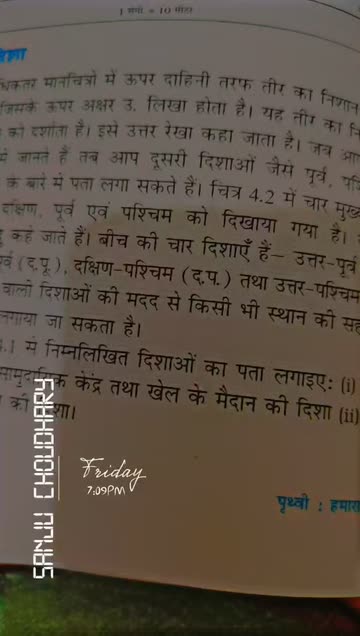 1 सेमी = 10 मीटर
दिशा
मानचित्रों में ऊपर दाहिनी तरफ तीर का निशान
जिसके ऊपर अक्षर उ. लिखा होता है। यह तीर का
को दर्शाता है। इसे उत्तर रेखा कहा जाता है। जब
जानते हैं तब आप दूसरी दिशाओं जैसे पूर्व,
के बारे में पता लगा सकते हैं। चित्र 4.2 में चार
दक्षिण, पूर्व एवं पश्चिम को दिखाया गया है।
कहे जाते हैं। बीच की चार दिशाएँ हैं – उत्तर-पूर्व
(द.पू.), दक्षिण-पश्चिम (द.प.) तथा उत्तर-पश्चिम
वाली दिशाओं की मदद से किसी भी स्थान की
लगाया जा सकता है।
में निम्नलिखित दिशाओं का पता लगाइए: (i)
केंद्र तथा खेल के मैदान की दिशा (ii)
की दिशा।
SANJU CHOUDHARY
Friday
7:09PM
पृथ्वी : हमारा